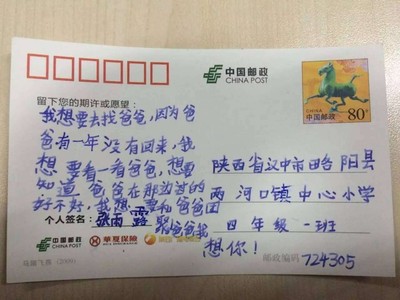 中国邮政
CHINA POST
CHINA
中国邮政
80分
留下您的期许或愿望：
我想要去找爸爸，因为爸
爸有一年没有回来，我
想要看一看爸爸，想要
知道爸爸在那边过的
好不好，我想要和爸爸团
聚爸爸我
想你！
个人签名：张雨露
陕西省汉中市略阳县
两河口镇中心小学
四年级一班
中国邮政
CHINA POST
华夏保险
马踏飞燕（2009）
邮政编码 724305